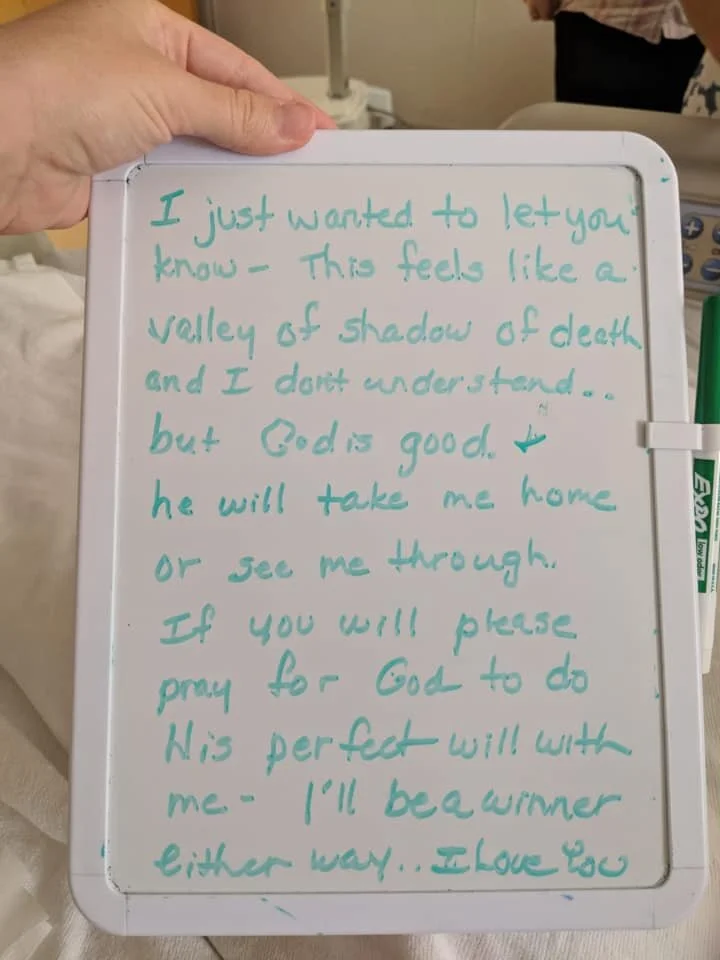 I just wanted to let you
know - This feels like a
valley of shadow of death
and I don't understand..
but God is good. +
he will take me home
or see me through.
If you will please
pray for God to do
His perfect will with
me - I'll be a winner
either way.. I Love You
EXPO
low odor